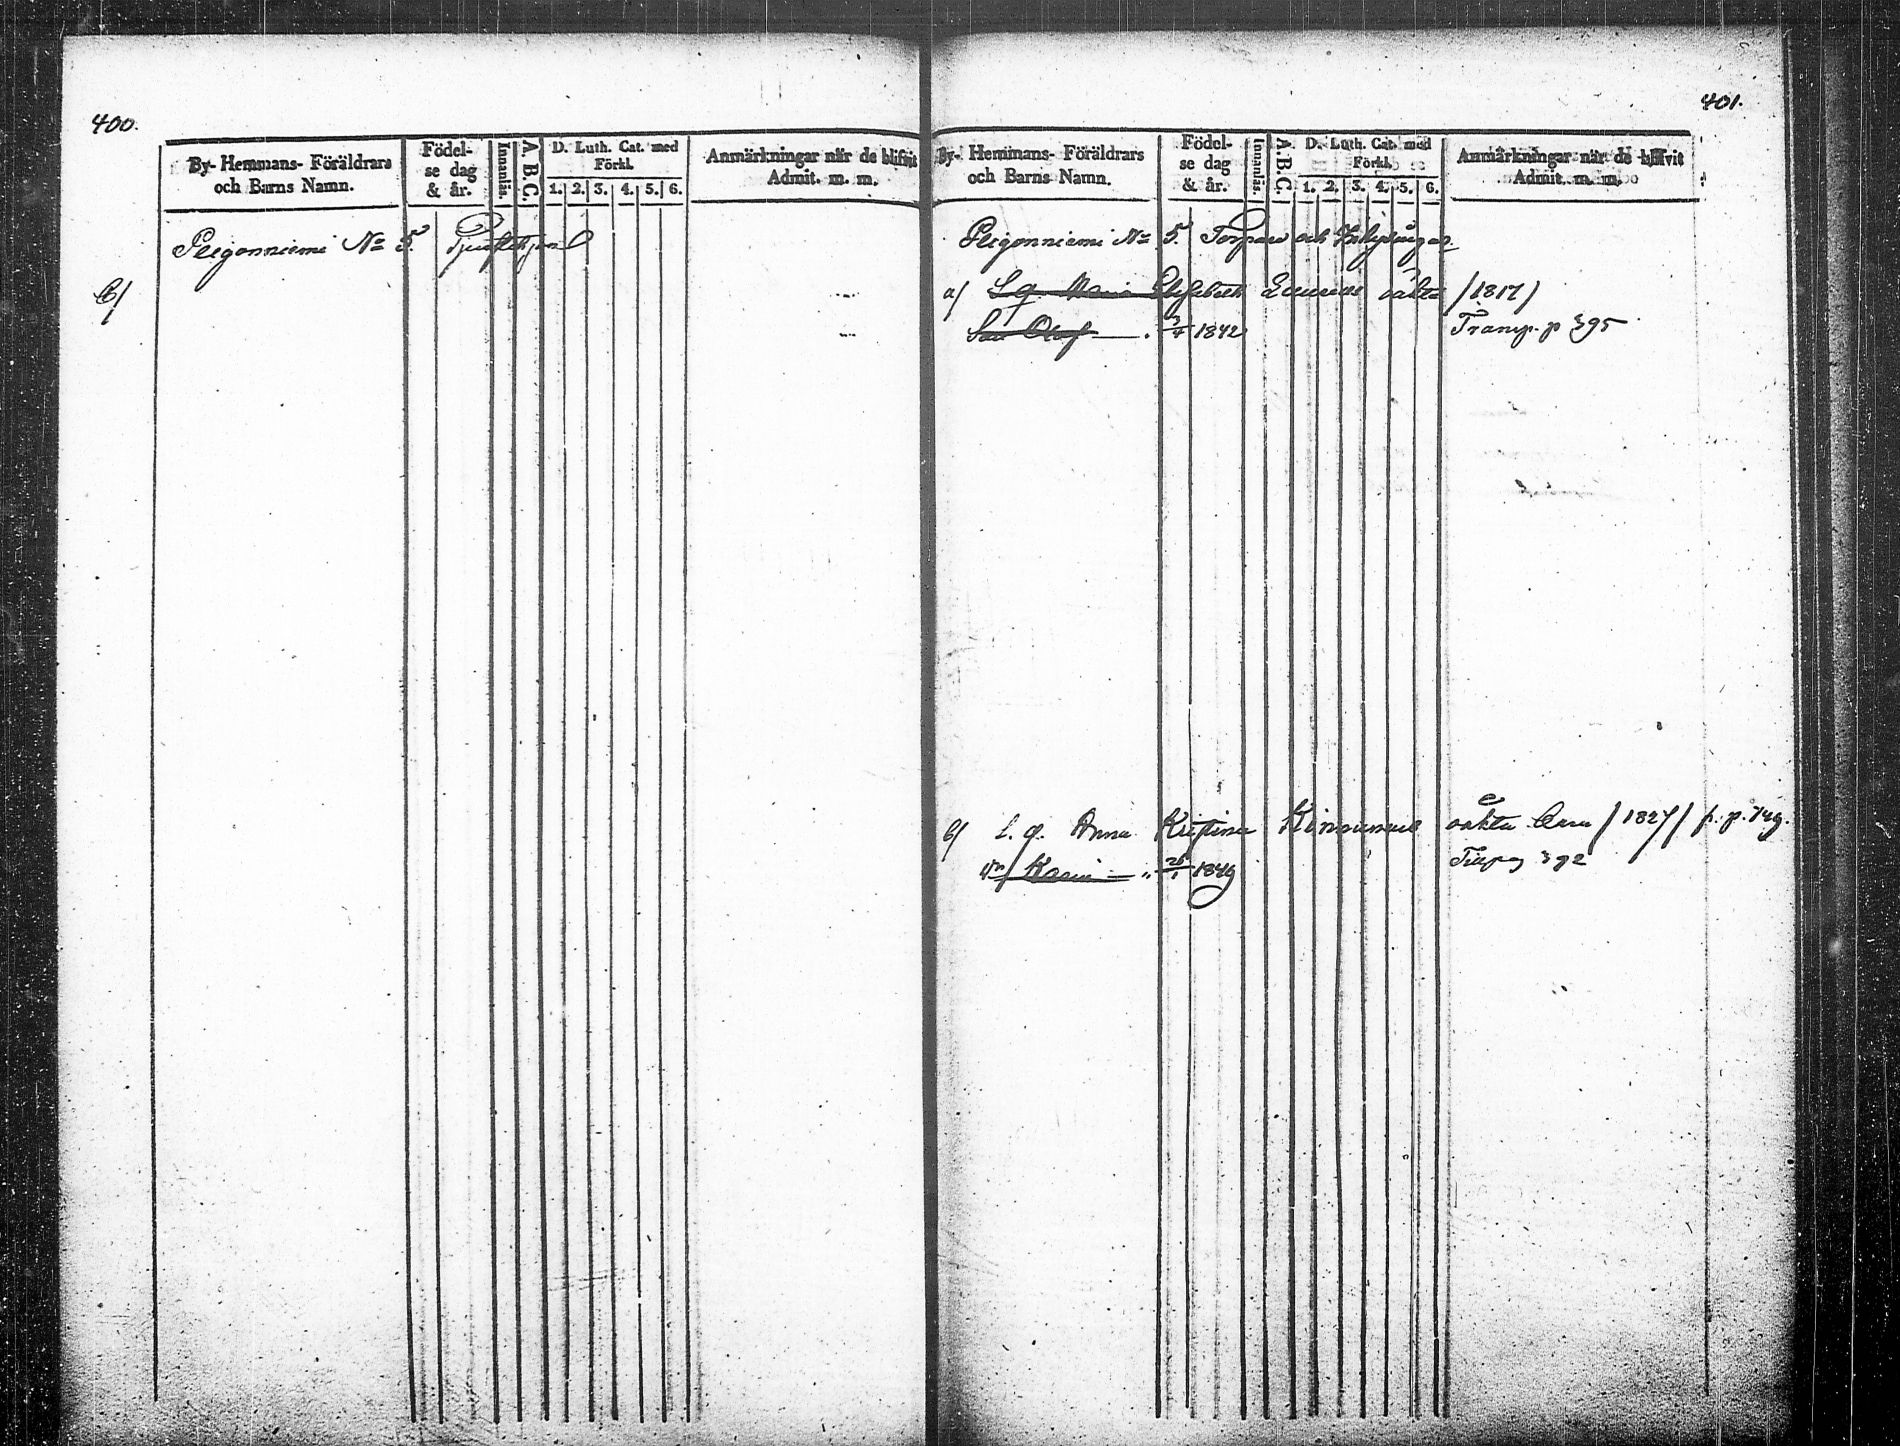 400.
By- Hemmans- Föräldrars och Barns Namn.
Födelse dag & år.
Innanläs.
A. B. C.
D. Luth. Cat. med Förkl.
1. 2. 3. 4. 5. 6.
Anmärkningar när de blifvit Admit. m. m.
Peigonniemi No 5.
B/
401.
By- Hemmans- Föräldrars och Barns Namn.
Födelse dag & år.
Innanläs.
A. B. C.
D. Luth. Cat. med Förkl.
1. 2. 3. 4. 5. 6.
Anmärkningar när de blifvit Admit. m. m.
Peigonniemi No 5. Torpare och Inhysingar
a/ L. q. Maria Elisabeth oäkta /1817/
Son Olof 1842 Transp. p 395
b/ L. q. Anna Kristina Kinnunens oäkta /1827/ p. p. 749.
Dr Maria 1849 392